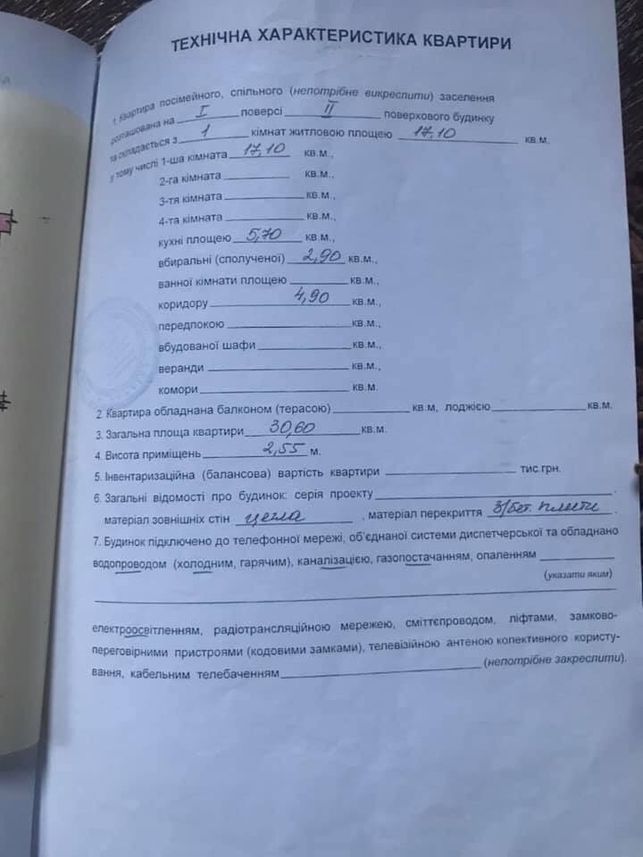 ТЕХНІЧНА ХАРАКТЕРИСТИКА КВАРТИРИ
1. Квартира посімейного, спільного (непотрібне викреслити) заселення
розташована на I поверсі II поверхового будинку
та складається з 1 кімнат житловою площею 17,10 кв.м.
у тому числі 1-ша кімната 17,10 кв.м.,
2-га кімната кв.м.,
3-тя кімната кв.м.,
4-та кімната кв.м.,
кухні площею 5,70 кв.м.,
вбиральні (сполученої) 2,90 кв.м.,
ванної кімнати площею кв.м.,
коридору 4,90 кв.м.,
передпокою кв.м.,
вбудованої шафи кв.м.,
веранди кв.м.,
комори кв.м.
2. Квартира обладнана балконом (терасою) кв.м, лоджією кв.м.
3. Загальна площа квартири 30,60 кв.м.
4. Висота приміщень 2,55 м.
5. Інвентаризаційна (балансова) вартість квартири тис.грн.
6. Загальні відомості про будинок: серія проекту .
матеріал зовнішніх стін цегла , матеріал перекриття З/бет. плити .
7. Будинок підключено до телефонної мережі, об'єднаної системи диспетчерської та обладнано
водопроводом (холодним, гарячим), каналізацією, газопостачанням, опаленням
(указати яким)
електроосвітленням, радіотрансляційною мережею, сміттєпроводом, ліфтами, замково-
переговірними пристроями (кодовими замками), телевізійною антеною колективного користу-
вання, кабельним телебаченням (непотрібне закреслити).